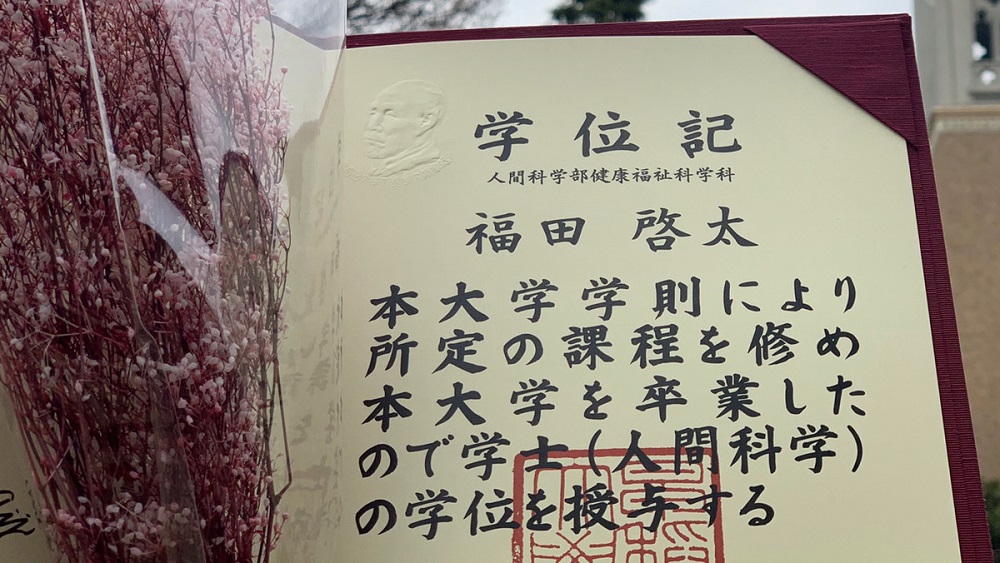 学位記
人間科学部健康福祉科学科
福田 啓太
本大学学則により
所定の課程を修め
本大学を卒業した
ので学士(人間科学)
の学位を授与する